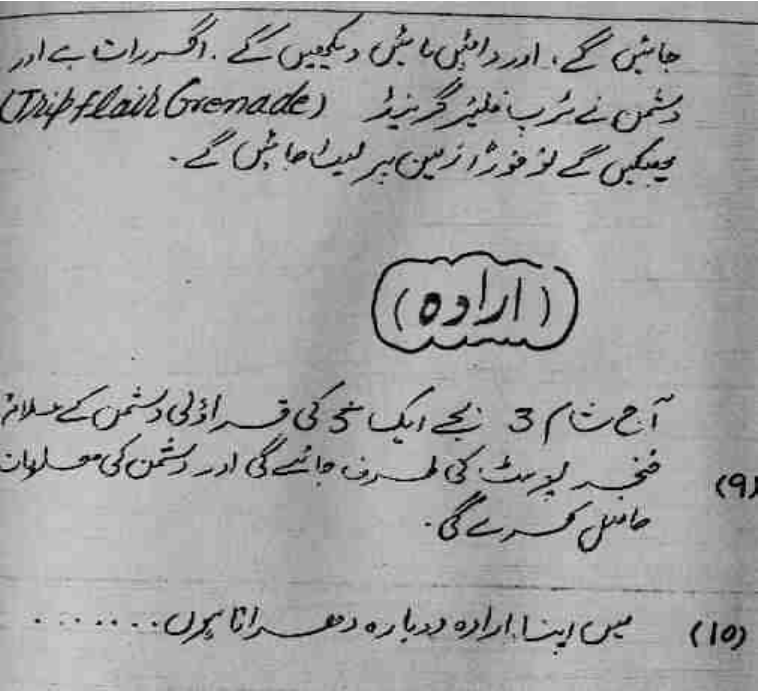 جائیں گے۔ اور دائیں بائیں دیکھیں گے۔ اگر رات ہے اور
دشمن نے ٹرپ فلیئر گرنیڈ (Trip flair Grenade)
پھینکیں گے تو فوراً زمین پر لیٹ جائیں گے۔
(ارادہ)
آج شام 3 بجے ایک کی دشمن کے
(9) خنجر پوسٹ کی طرف جائے گی اور دشمن کی معلومات
حاصل کرے گی۔
(10) میں اپنا ارادہ دوبارہ دھراتا ہوں........